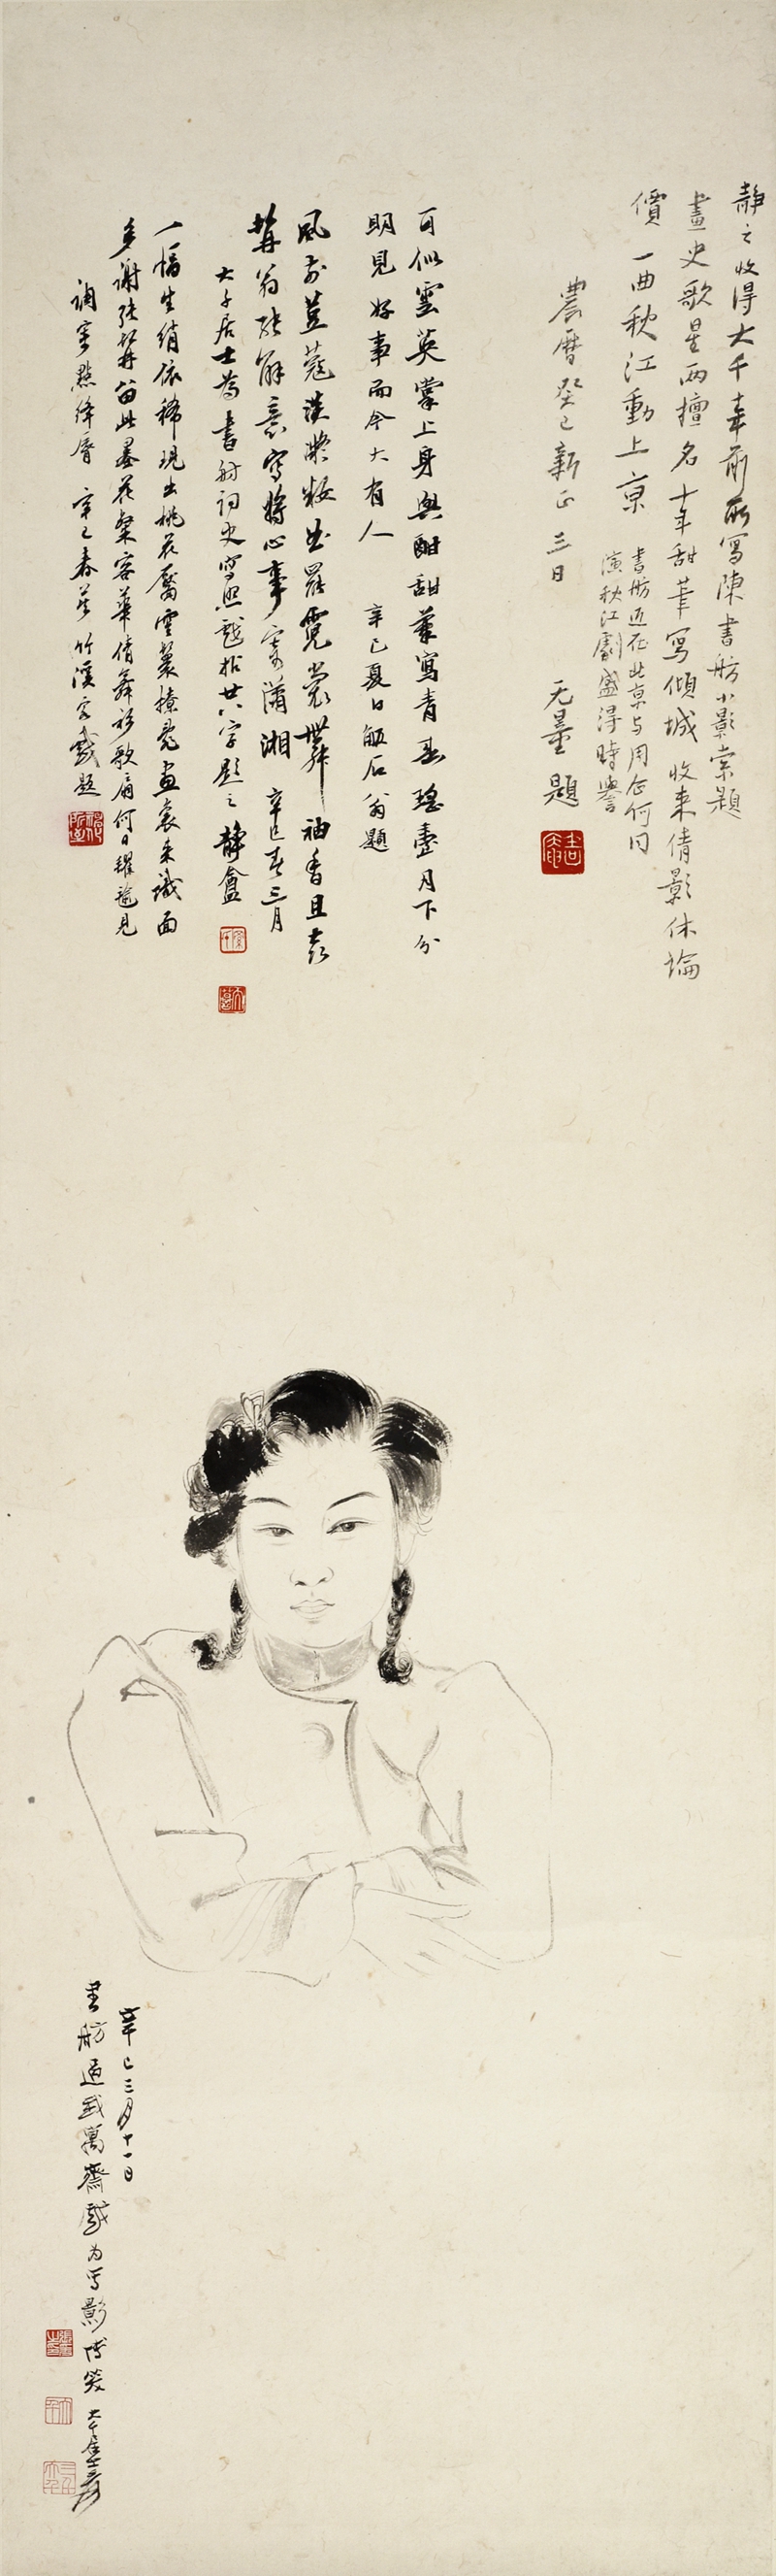 靜之收得大千年前所寫陳書舫小影索題
畫史歌星兩擅名十年甜筆寫傾城收来倩影休論
價一曲秋江動上京
書舫近在北京与周企何同
演秋江劇盛得時譽
農曆癸巳新正三日
无量題
可似雲英掌上身與酣甜筆寫青春瑤臺月下分
明見好事而今大有人
辛巳夏日觝石翁題
風前荳蔻淡濃妝出羅霓裳舞袖香且喜
髯翁能解意寫將心事寄瀟湘
辛巳年三月
大千居士為書舫詞史寫照戲拈廿八字題之靜盦
一幅生綃依稀現出桃花靨雲鬟撩亂畫裏来識面
多謝張髯留此曇花粲容華倩舞衫歌扇何日樽前見
調寄點絳脣
辛巳春暮竹溪客戲題
辛巳三月十一日
書舫過我寓齋戲為写影博粲
大千居士爰